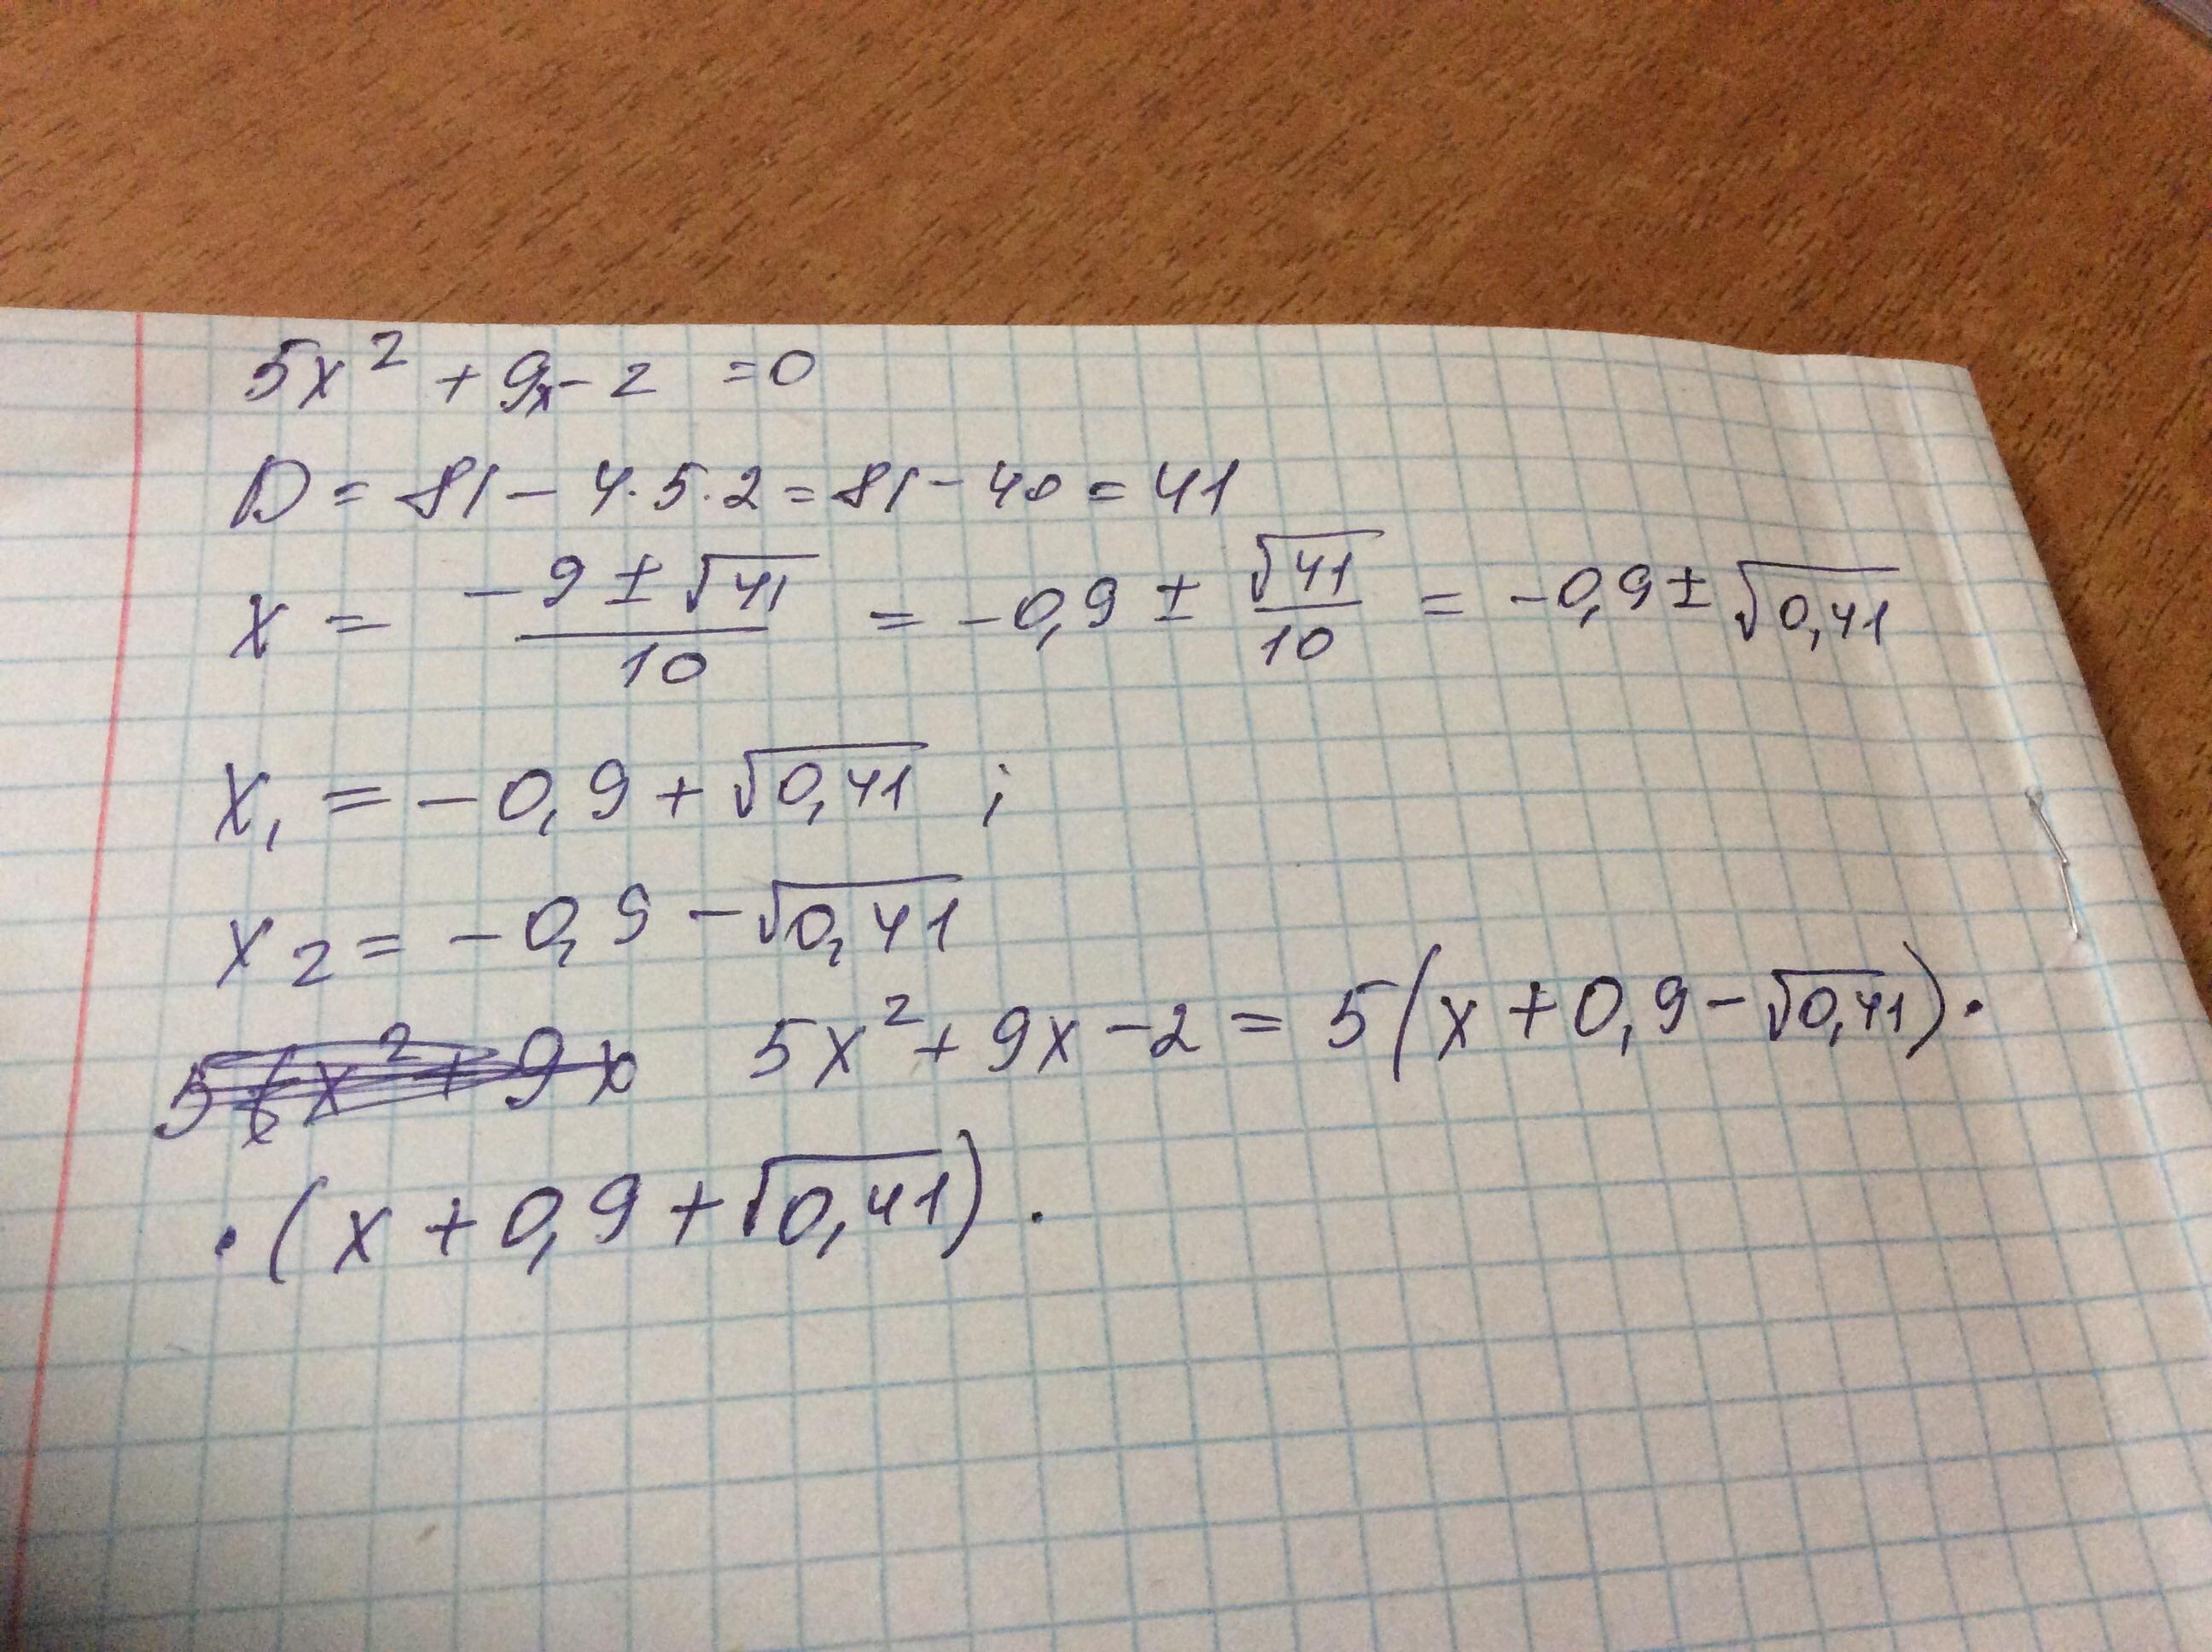 5x² + 9x - 2 = 0
D = 81 - 4·5·2 = 81 - 40 = 41
x = (-9 ± √41)/10 = -0,9 ± √41/10 = -0,9 ± √0,41
x₁ = -0,9 + √0,41 ;
x₂ = -0,9 - √0,41
5x² + 9x - 2 = 5(x + 0,9 - √0,41)·
·(x + 0,9 + √0,41).